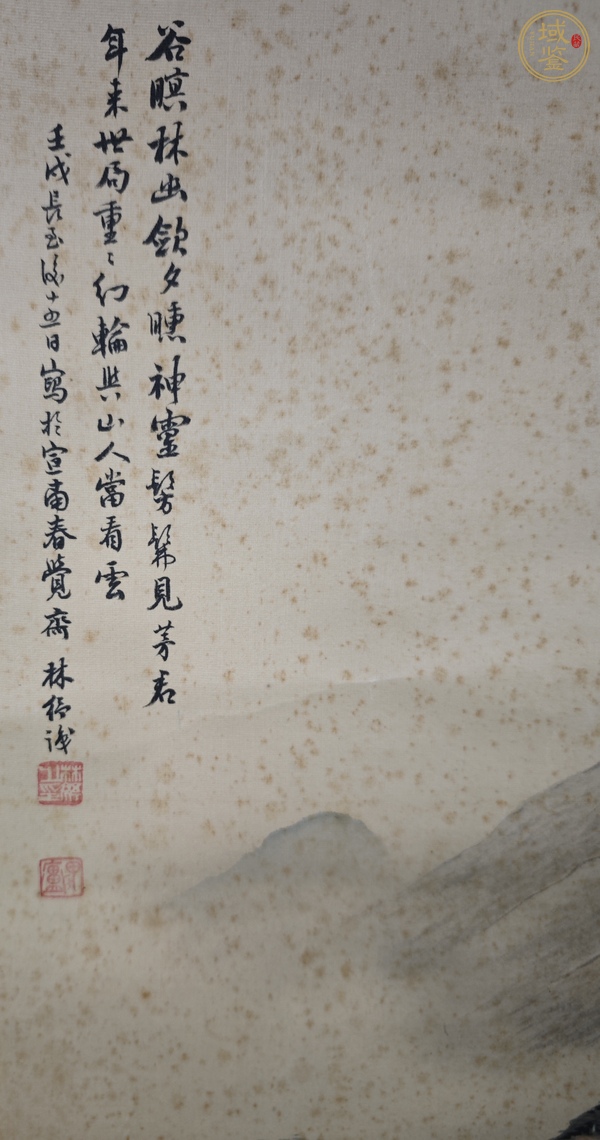 谷暝林幽歛夕曛神靈髣髴見茅君
年来世局重〻幻輪與山人當看雲
壬戌長至後十五日寫於宣南春覺齋 林紓識
林紓之印
畏廬
域鑒